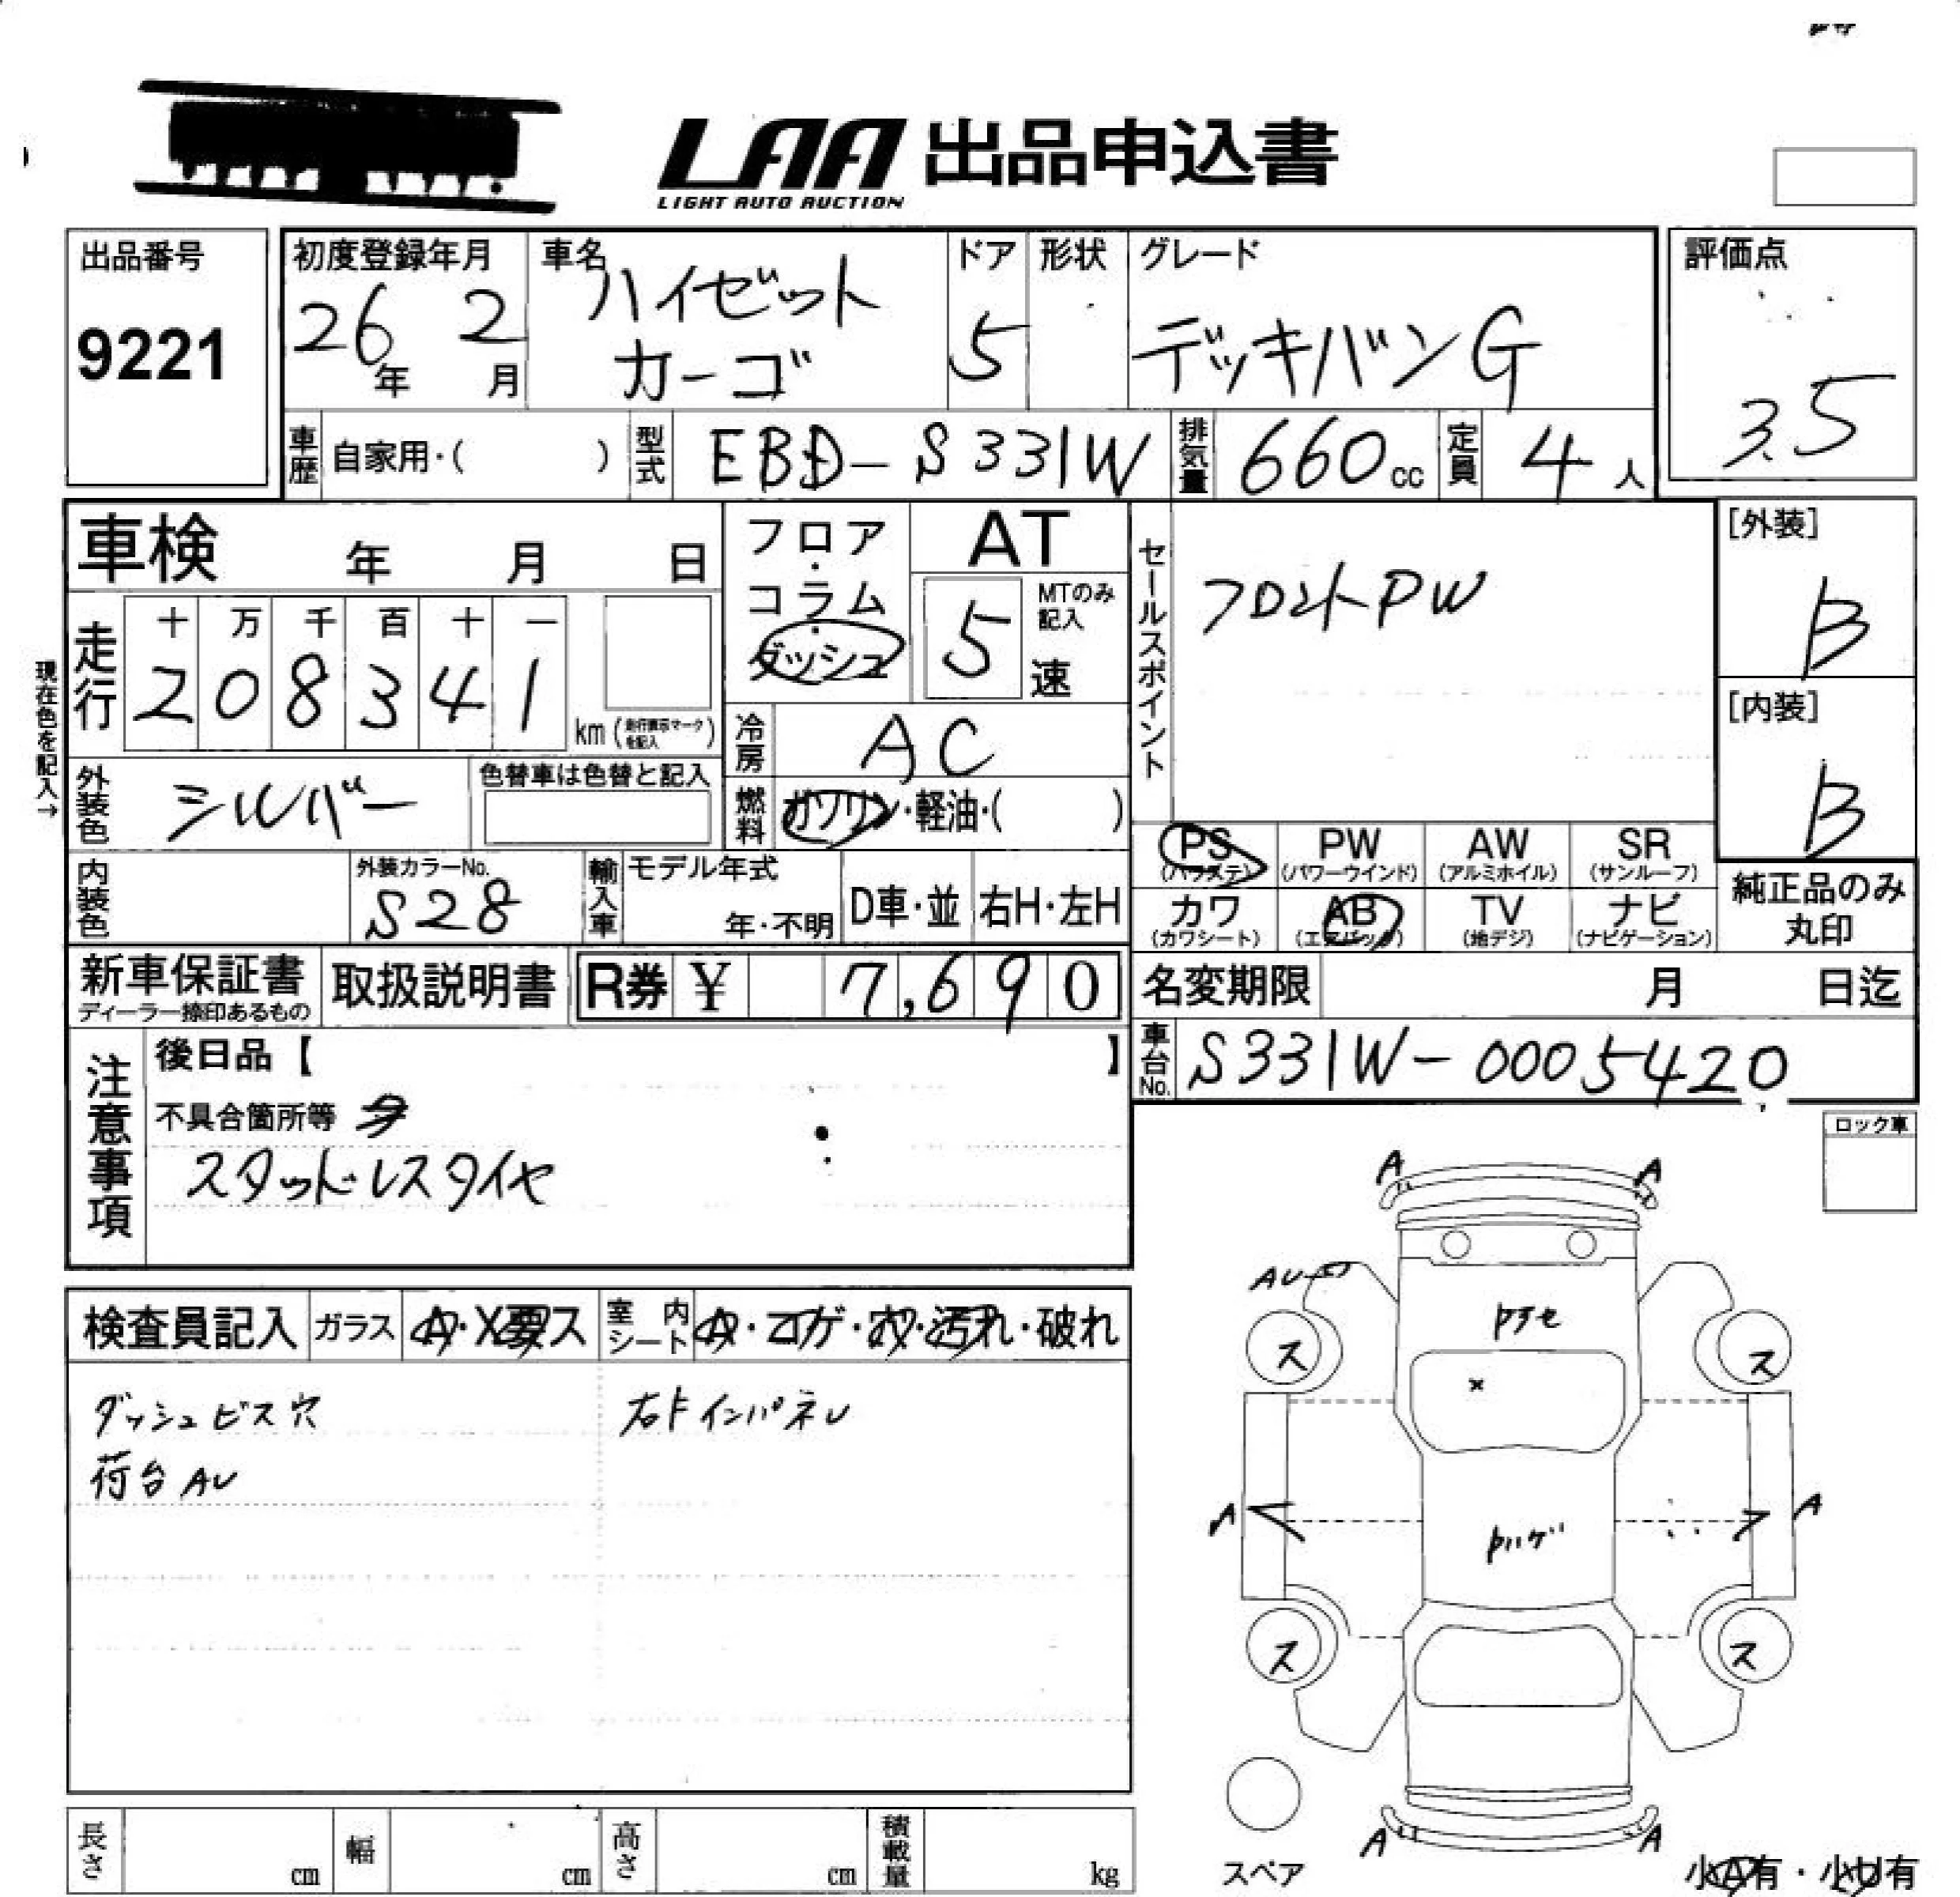 LAA 出品申込書
LIGHT AUTO AUCTION
出品番号
9221
初度登録年月
26年 2月
車名
ハイゼット
カーゴ
ドア
5
形状
グレード
デッキバンG
評価点
3.5
車歴 自家用・( )
型式 EBD-S331W
排気量 660cc
定員 4人
車検 年 月 日
フロア・コラム・ダッシュ
AT
5速
MTのみ記入
セールスポイント
フロントPW
[外装]
B
[内装]
B
現在色を記入→
走行
十 万 千 百 十 一
2 0 8 3 4 1
km(走行表示マークを記入)
冷房 AC
外装色 シルバー
色替車は色替と記入
燃料 ガソリン・軽油・( )
PS (パワステ)
PW (パワーウインド)
AW (アルミホイル)
SR (サンルーフ)
カワ (カワシート)
AB (エアバック)
TV (地デジ)
ナビ (ナビゲーション)
純正品のみ丸印
内装色
外装カラーNo.
S28
輸入車 モデル年式
年・不明
D車・並
右H・左H
新車保証書
ディーラー捺印あるもの
取扱説明書
R券 ¥ 7,690
名変期限 月 日迄
車台No. S331W-0005420
注意事項
後日品【 】
不具合箇所等
スタッドレスタイヤ
ロック車
検査員記入
ガラス A・X要ス
室内シート A・コゲ・穴・汚れ・破れ
ダッシュビス穴
荷台AU
右Fインパネレ
A
A
AU
ス
ス
×
A
A
ス
ス
A
A
スペア
小A有・小U有
長さ cm
幅 cm
高さ cm
積載量 kg